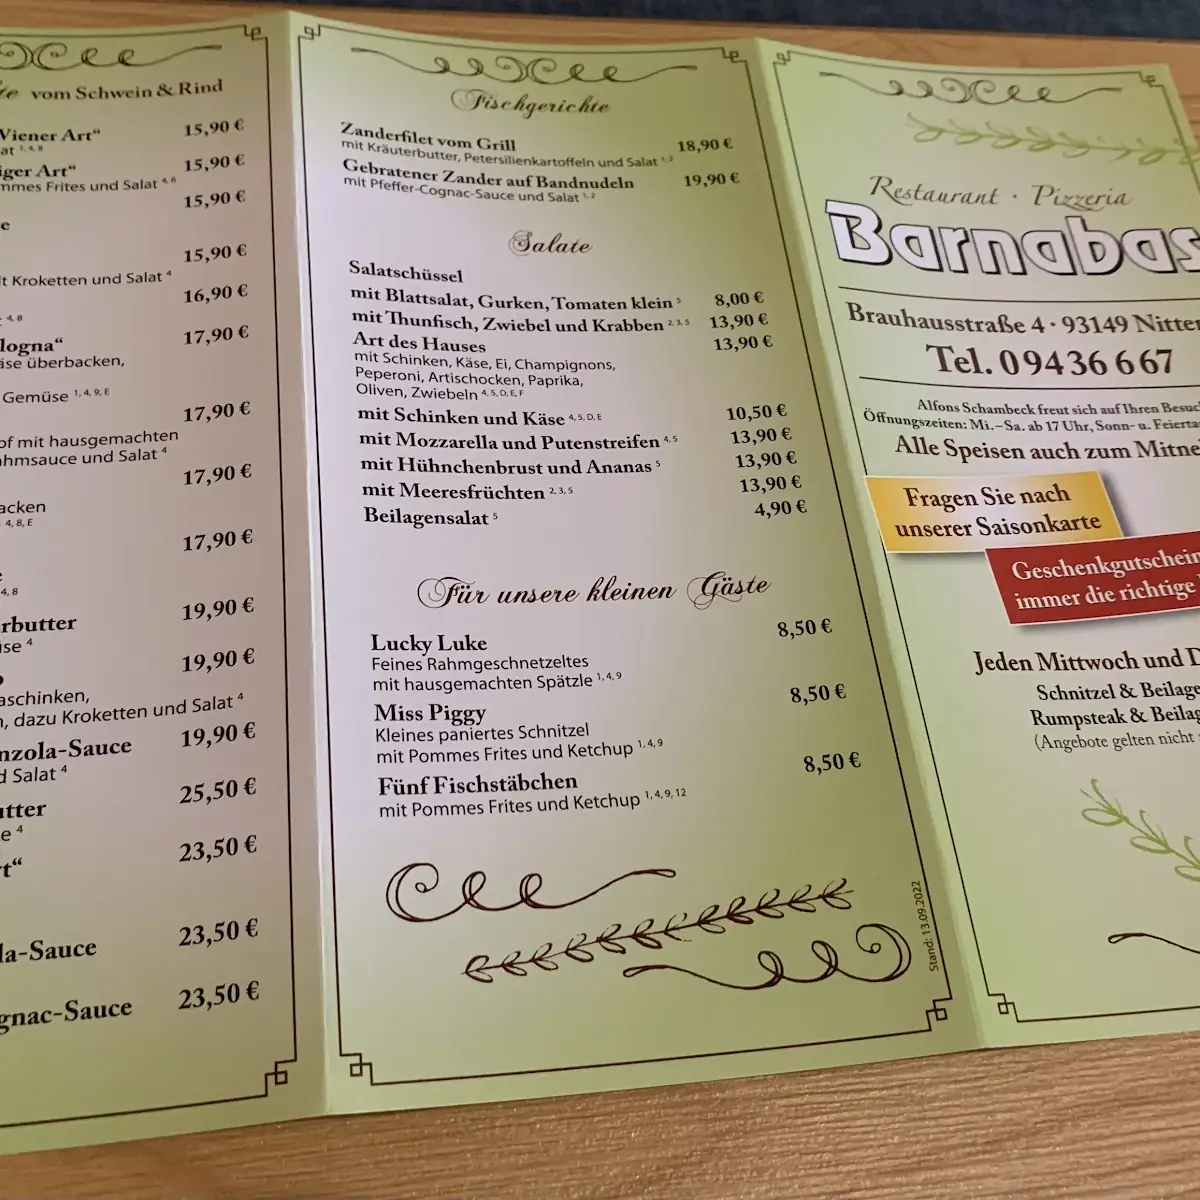 vom Schwein & Rind
Wiener Art“ 15,90 €
1, 4, 8
Art“ 15,90 €
Frites und Salat 4, 8
15,90 €
15,90 €
Kroketten und Salat 4
16,90 €
4, 8
17,90 €
überbacken,
Gemüse 1, 4, 9, E
17,90 €
mit hausgemachten
und Salat 4
17,90 €
4, 8, E
17,90 €
4, 8
19,90 €
4
19,90 €
dazu Kroketten und Salat 4
19,90 €
Salat 4
25,50 €
4
23,50 €
23,50 €
23,50 €
Fischgerichte
Zanderfilet vom Grill 18,90 €
mit Kräuterbutter, Petersilienkartoffeln und Salat 1, 2
Gebratener Zander auf Bandnudeln 19,90 €
mit Pfeffer-Cognac-Sauce und Salat 1, 2
Salate
Salatschüssel
mit Blattsalat, Gurken, Tomaten klein 5 8,00 €
mit Thunfisch, Zwiebel und Krabben 2, 3, 5 13,90 €
Art des Hauses 13,90 €
mit Schinken, Käse, Ei, Champignons,
Peperoni, Artischocken, Paprika,
Oliven, Zwiebeln 4, 5, D, E, F
mit Schinken und Käse 4, 5, D, E 10,50 €
mit Mozzarella und Putenstreifen 4, 5 13,90 €
mit Hühnchenbrust und Ananas 5 13,90 €
mit Meeresfrüchten 2, 3, 5 13,90 €
Beilagensalat 5 4,90 €
Für unsere kleinen Gäste
Lucky Luke 8,50 €
Feines Rahmgeschnetzeltes
mit hausgemachten Spätzle 1, 4, 9
Miss Piggy 8,50 €
Kleines paniertes Schnitzel
mit Pommes Frites und Ketchup 1, 4, 9
Fünf Fischstäbchen 8,50 €
mit Pommes Frites und Ketchup 1, 4, 9, 12
Stand: 13.09.2022
Restaurant · Pizzeria
Barnabas
Brauhausstraße 4 · 93149 Nitten
Tel. 09436 667
Alfons Schambeck freut sich auf Ihren Besuc
Öffnungszeiten: Mi.–Sa. ab 17 Uhr, Sonn- u. Feierta
Alle Speisen auch zum Mitne
Fragen Sie nach
unserer Saisonkarte
Geschenkgutschein
immer die richtige
Jeden Mittwoch und D
Schnitzel & Beilage
Rumpsteak & Beilag
(Angebote gelten nicht